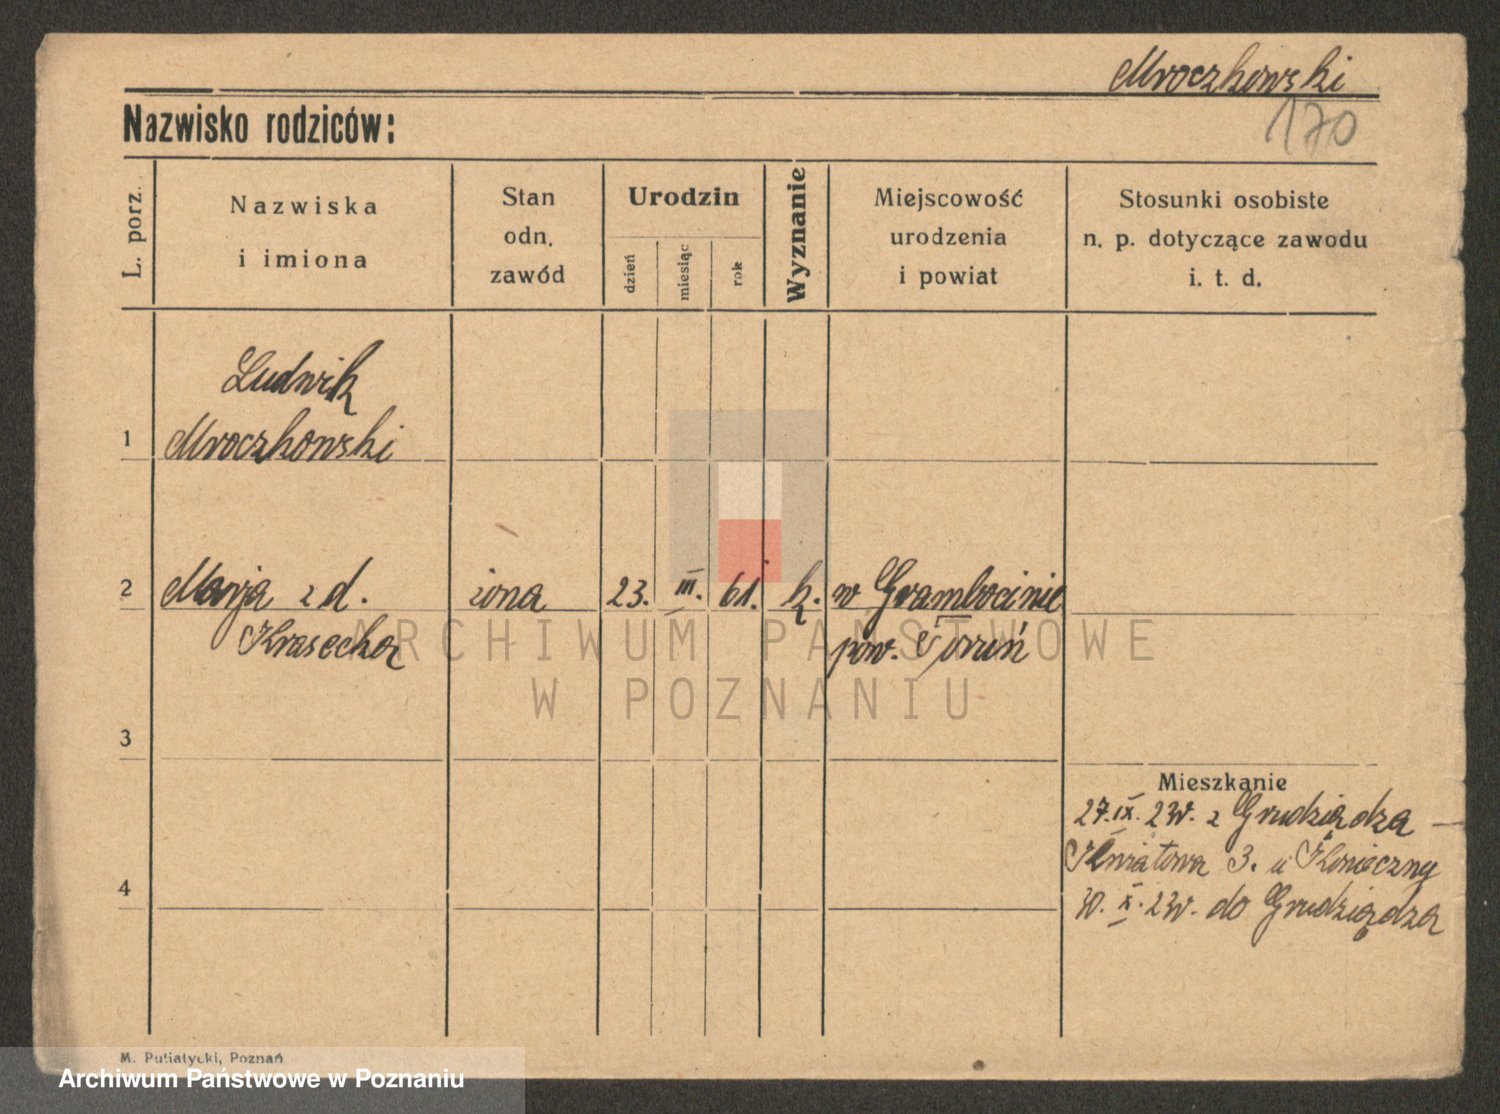 Mroczkowski
170
Nazwisko rodziców:
L. porz.
Nazwiska
i imiona
Stan
odn.
zawód
Urodzin
dzień
miesiąc
rok
Wyznanie
Miejscowość
urodzenia
i powiat
Stosunki osobiste
n. p. dotyczące zawodu
i. t. d.
Ludwik
1 Mroczkowski
2 Marja z d. żona 23. III. 61. k. w Grambocinie
Krasecka pow. Toruń
ARCHIWUM PAŃSTWOWE
W POZNANIU
3
Mieszkanie
27. IX. 23r. z Grudziądza —
Kwiatowa 3. u Konieczny
4
30. X. 23r. do Grudziądza
M. Putiatycki, Poznań
Archiwum Państwowe w Poznaniu